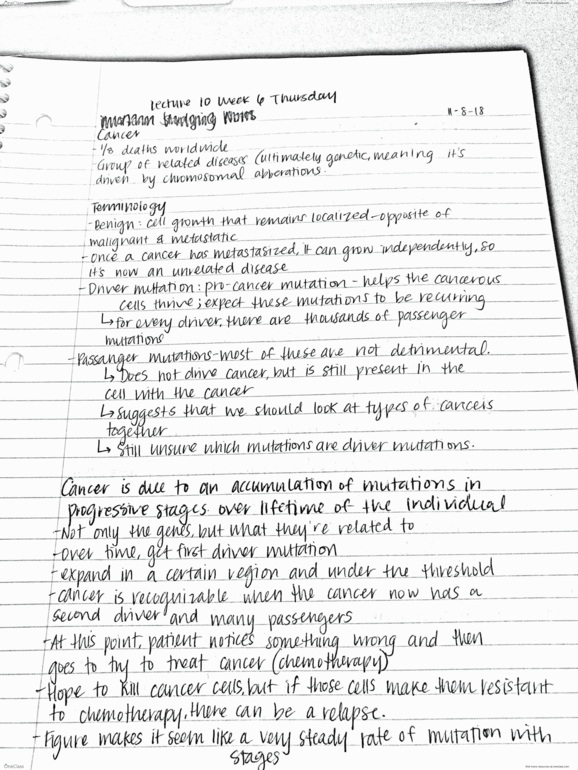 lecture 10 Week 6 Thursday
11-8-18
Cancer
- 1/8 deaths worldwide
- Group of related diseases (ultimately genetic, meaning it's
driven by chromosomal abberations.
Terminology
- Benign: cell growth that remains localized - opposite of
malignant & metastatic
- Once a cancer has metastasized, it can grow independently, so
it's now an unrelated disease
- Driver mutation: pro-cancer mutation - helps the cancerous
cells thrive; expect these mutations to be recurring
↳ for every driver, there are thousands of passenger
mutations
- Passanger mutations - most of these are not detrimental.
↳ Does not drive cancer, but is still present in the
cell with the cancer
↳ suggests that we should look at types of cancers
together
↳ still unsure which mutations are driver mutations.
Cancer is due to an accumulation of mutations in
progressive stages over lifetime of the individual
- Not only the genes, but what they're related to
- over time, get first driver mutation
- expand in a certain region and under the threshold
- cancer is recognizable when the cancer now has a
second driver and many passengers
- At this point, patient notices something wrong and then
goes to try to treat cancer (chemotherapy)
- Hope to kill cancer cells, but if those cells make them resistant
to chemotherapy, there can be a relapse.
- Figure makes it seem like a very steady rate of mutation with
stages
OneClass